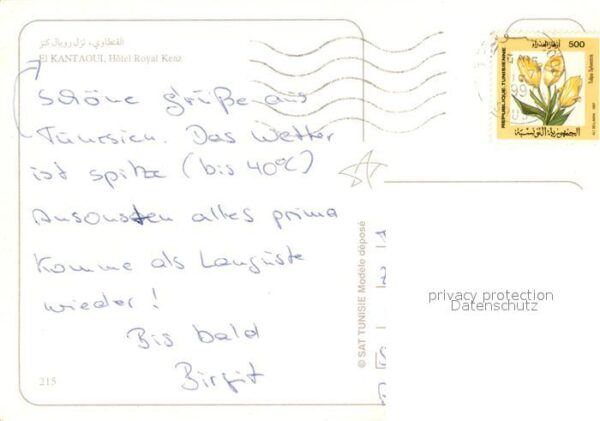 القنطاوي، نزل رويال كنز
El KANTAOUI, Hôtel Royal Kenz
schöne grüße aus
Tunesien. Das Wetter
ist spitze (bis 40°C)
Ansonsten alles prima
Komme als Languste
wieder!
Bis bald
Birgit
215
© SAT TUNISIE Modèle déposé
500
REPUBLIQUE TUNISIENNE
الجمهورية التونسية
Tulipa Sylvestris
privacy protection
Datenschutz